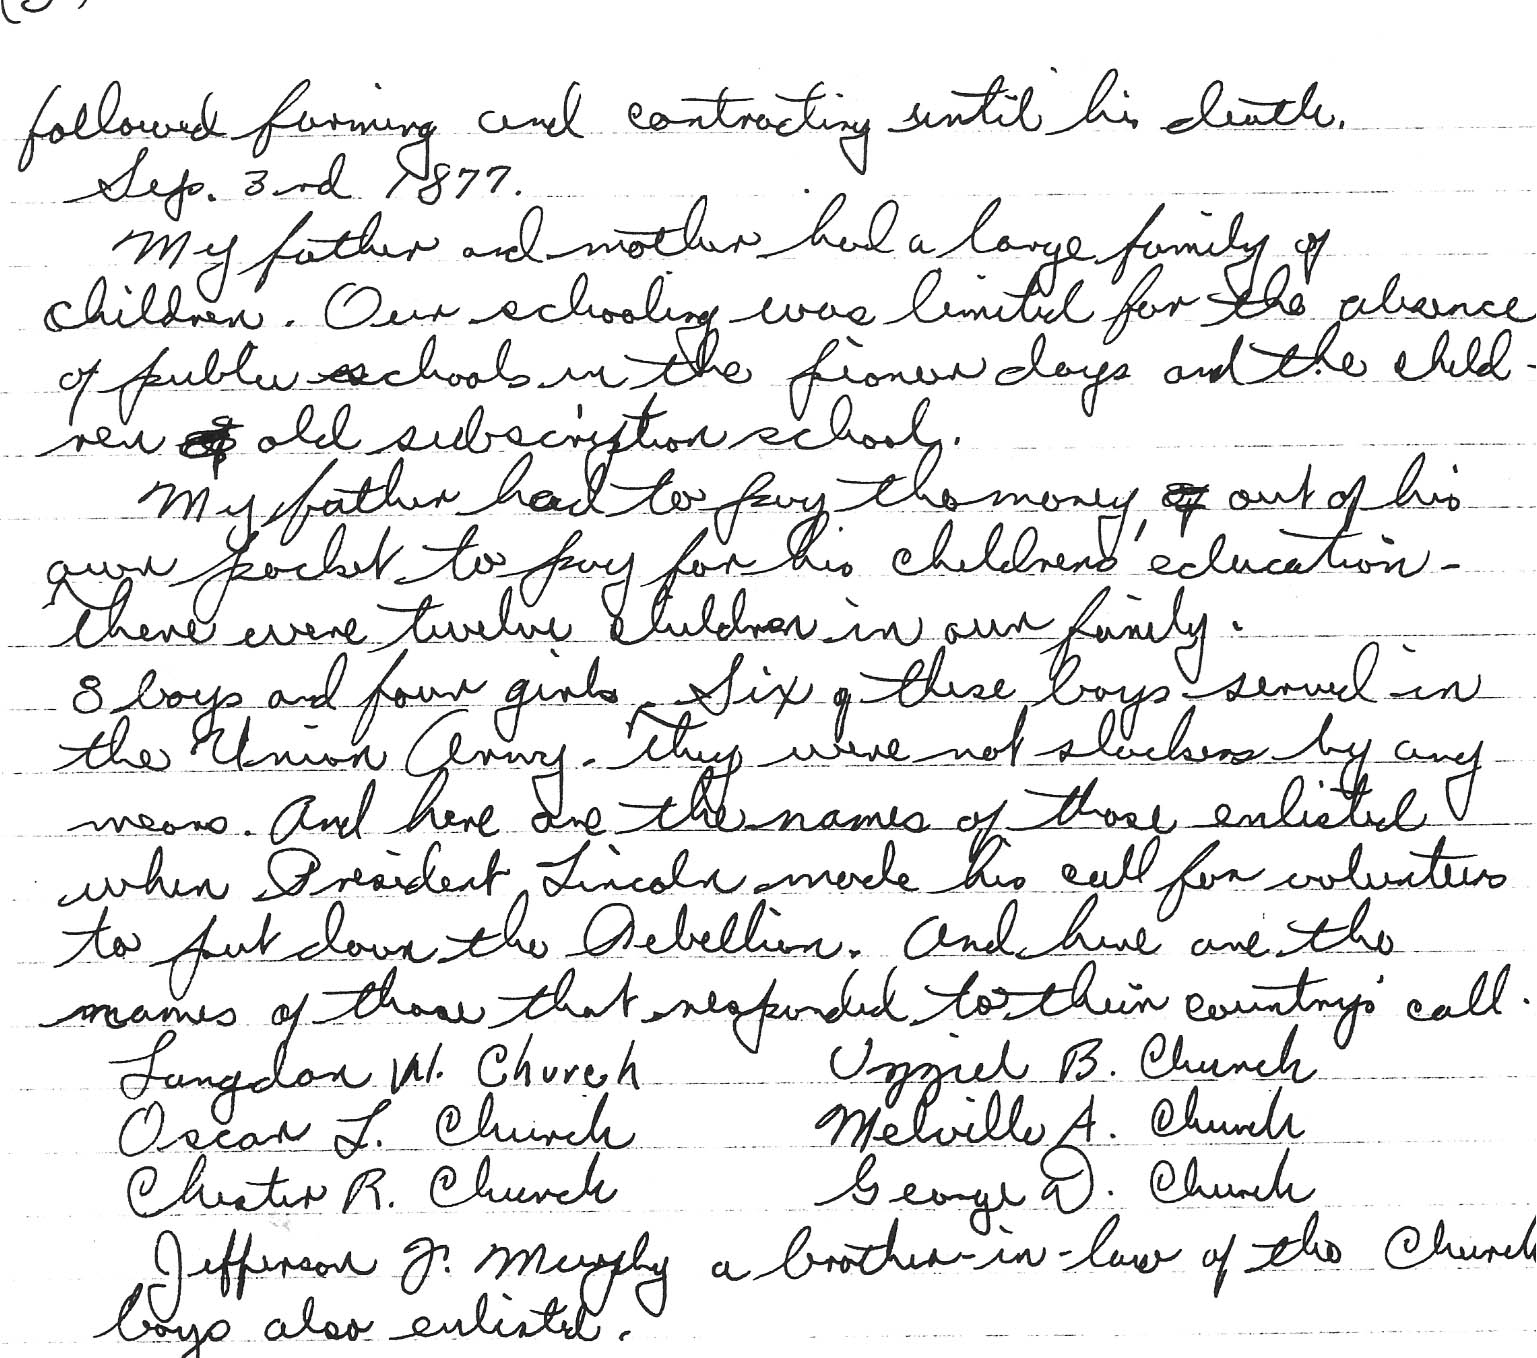 followed farming and contracting until his death.
Sep. 3rd 1877.
My father and mother had a large family of
children. Our schooling was limited for the absence
of public schools in the pioneer days and the child-
ren old subscription school.
My father had to pay the money, out of his
own pocket to pay for his childrens' education -
There were twelve children in our family.
8 boys and four girls. Six of these boys served in
the Union Army. They were not slackers by any
means. And here are the names of those enlisted
when President Lincoln made his call for volunteers
to put down the Rebellion. And here are the
names of those that responded to their country's call.
Langdon W. Church Uzziel B. Church
Oscar L. Church Melville A. Church
Chester R. Church George D. Church
Jefferson J. Murphy a brother-in-law of the Church
boys also enlisted.